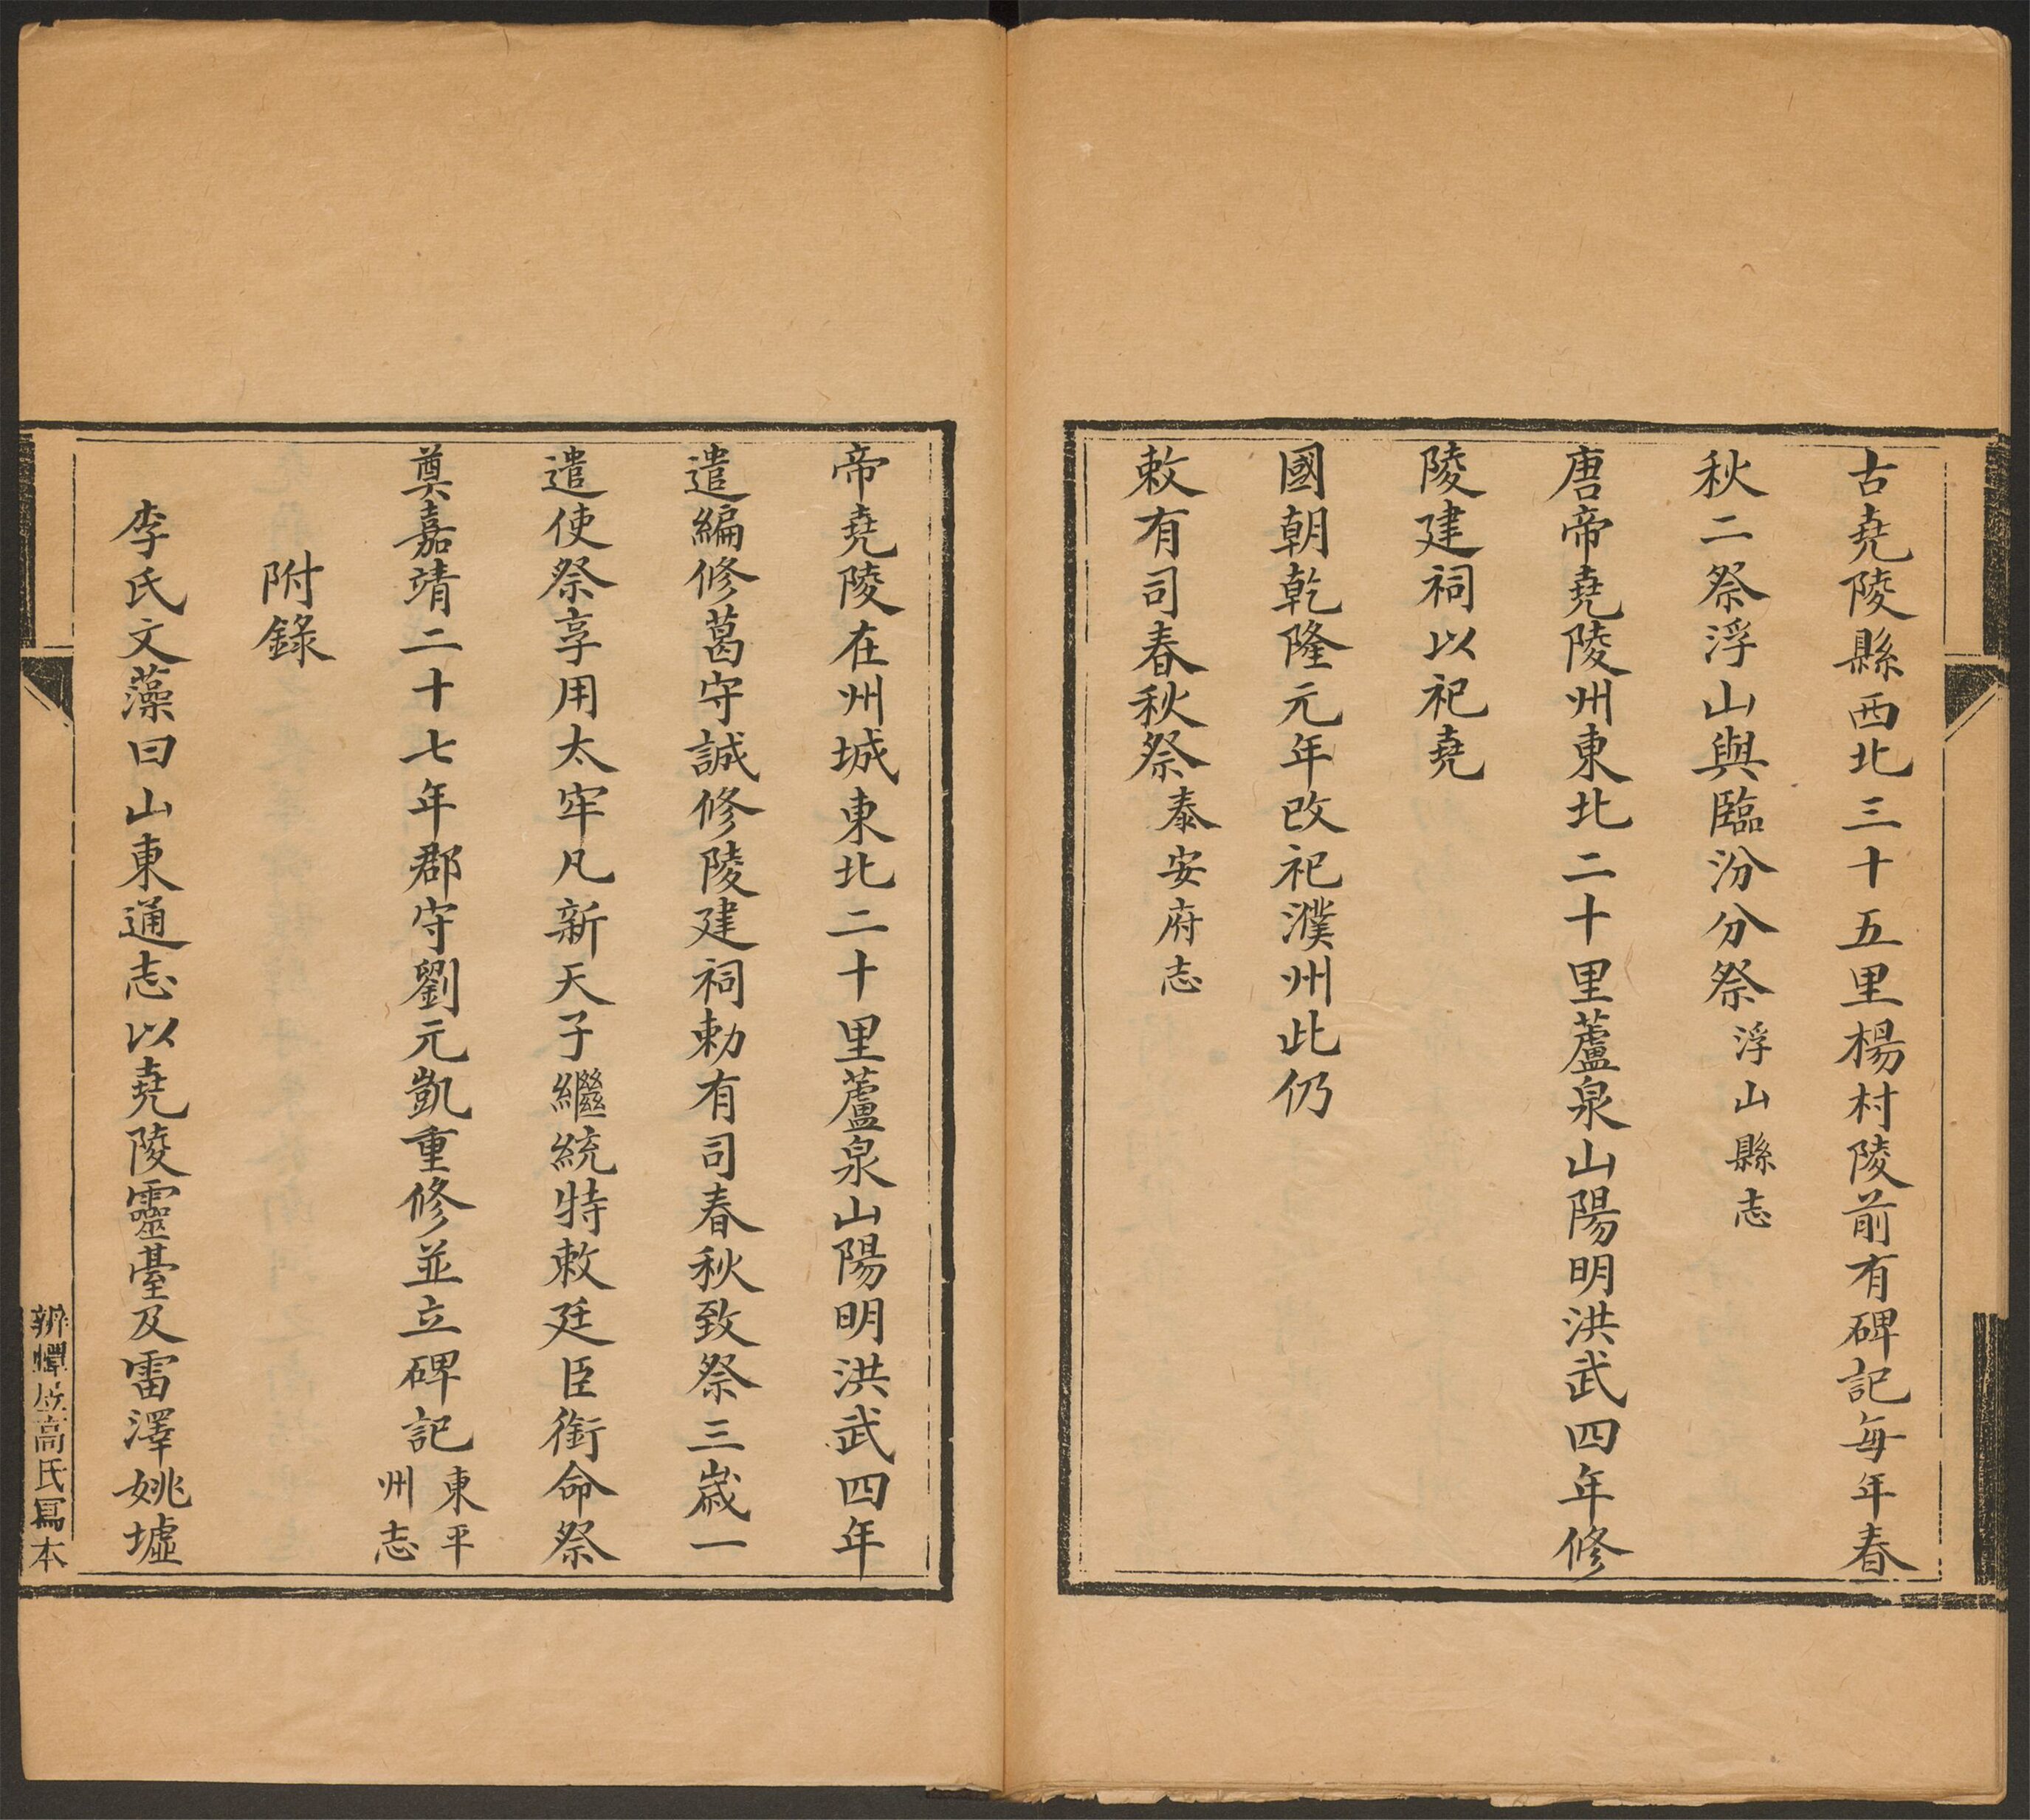 古堯陵縣西北三十五里楊村陵前有碑記每年春
秋二祭浮山與臨汾分祭浮山縣志
唐帝堯陵州東北二十里蘆泉山陽明洪武四年修
陵建祠以祀堯
國朝乾隆元年改祀濮州此仍
敕有司春秋祭泰安府志
帝堯陵在州城東北二十里蘆泉山陽明洪武四年
遣編修葛守誠修陵建祠勅有司春秋致祭三歲一
遣使祭享用太牢凡新天子繼統特敕廷臣銜命祭
奠嘉靖二十七年郡守劉元凱重修並立碑記東平州志
附錄
李氏文藻曰山東通志以堯陵靈臺及雷澤姚墟
辨蟫居高氏寫本